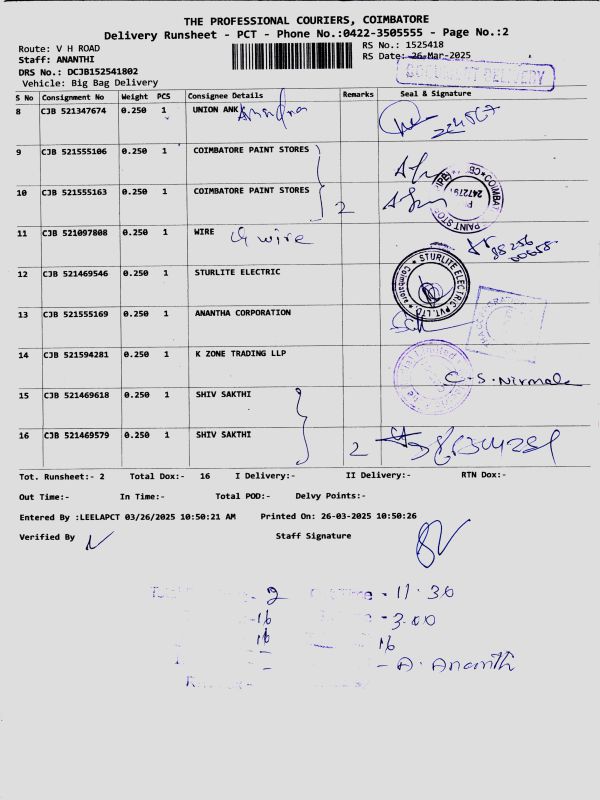 THE PROFESSIONAL COURIERS, COIMBATORE
Delivery Runsheet - PCT - Phone No.:0422-3505555 - Page No.:2
Route: V H ROAD
RS No.: 1525418
Staff: ANANTHI
RS Date: 26-Mar-2025
DRS No.: DCJB152541802
DOCUMENT DELIVERY
Vehicle: Big Bag Delivery
S No Consignment No Weight PCS Consignee Details Remarks Seal & Signature
8 CJB 521347674 0.250 1 UNION ANK
9 CJB 521555106 0.250 1 COIMBATORE PAINT STORES
10 CJB 521555163 0.250 1 COIMBATORE PAINT STORES 2
11 CJB 521097808 0.250 1 WIRE
12 CJB 521469546 0.250 1 STURLITE ELECTRIC
STURLITE ELECTRIC PVT. LTD. Coimbatore
13 CJB 521555169 0.250 1 ANANTHA CORPORATION
14 CJB 521594281 0.250 1 K ZONE TRADING LLP C. S. Nirmala
15 CJB 521469618 0.250 1 SHIV SAKTHI
16 CJB 521469579 0.250 1 SHIV SAKTHI 2
Tot. Runsheet:- 2 Total Dox:- 16 I Delivery:- II Delivery:- RTN Dox:-
Out Time:- In Time:- Total POD:- Delvy Points:-
Entered By :LEELAPCT 03/26/2025 10:50:21 AM Printed On: 26-03-2025 10:50:26
Verified By Staff Signature
2 - 11.30
-16 - 3.00
16 16
- A. Ananth